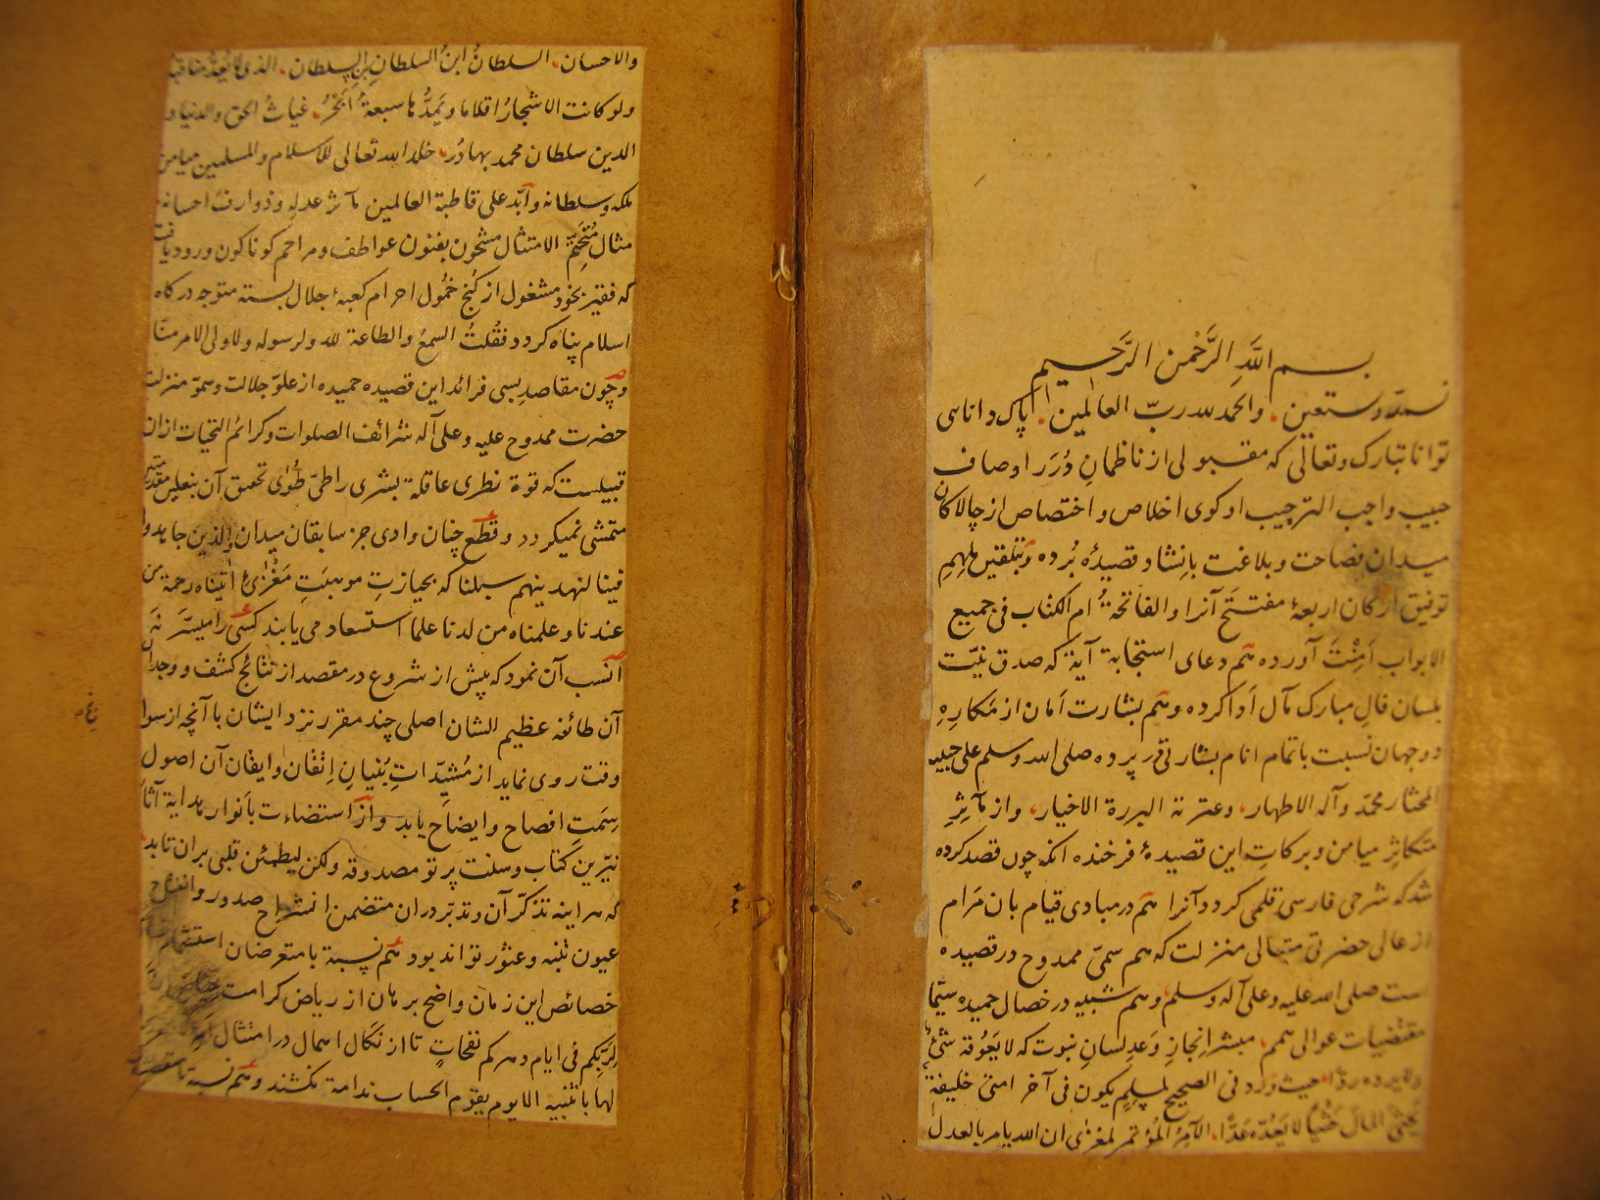 بسم اللَّهِ الرَّحْمن الرَّحيم
نستعين . والحمد لله ربّ العالمين . اپاک دانای
توانا تبارک وتعالی که مقبولی از ناظمانِ دُرَر اوصاف
حبیب واجب الترجیب او کوی اخلاص و اختصاص از چالاکان
میدان فصاحت و بلاغت بانِشاد قصیدۀ بُرده و بتلقین مُلهِمِ
توفیق ارکان اربعۀ مفتتَحِ آنرا والفاتحة ُام الکتاب فی جمیع
الابواب اَمِنْتَ آورده هَم دعای استجابة آیة که صدق نیّت
بلسان فال مبارک مآل اَدا کرده و هَم بشارت اَمان از مَکارِهِ
دوجهان نسبت باتمام انام بشارتی در پرده صلی الله وسلم علی حبیبه
المختار محمّد وآله الاطهار، وعترته البررة الاخیار، واز مآثرِ
متکاثرِ میامن و برکاتِ این قصیدۀ فرخنده آنکه چون قصد کرده
شد که شرحی فارسی قلمی کردد و آنرا هَم در مبادی قیام بان مَرام
از عالی حضرتی متعالی منزلت که هم سمیّ ممدوح در قصیده
است صلی الله علیه وعلی آله وسلم، و هم شبیه در خصال حمیده سیّما
مقتضیات عوالی همم، مبشر اِنجازِ وَعدِ لسانِ نبوت که لایَعُوقه شئٌ
ولایرده رادٌّ، حیث وَرَد فی الصحیح لمسلِمٍ یکون فی آخر امتی خلیفةٌ
یَحثی المالَ حَثْیًا لا یَعُدُّه عَدًّا، الآمِرُ المُؤتمر لمغزی ان الله یامر بالعدل
والاحسان، السلطانُ ابنُ السلطانِ بن السلطان، الذی لا یُعدّ مناقبه
ولو کانت الاشجارُ اقلاما ویَمُدُّها سبعةُ اَبْحُرٍ، غیاثُ الحق والدنیا و
الدین سلطان محمد بهادُر، خلد الله تعالی للاسلام والمسلمین میامن
ملکه وسلطانه وأبّد علی قاطبة العالمین مآثر عدلِه وذوارف احسانه،
مثال مُتَحتّم الامتثال مشحون بفنون عواطف ومراحم کوناکون ورود یافت
که فقیر بخود مشغول از کُنج خُمُول احرام کعبۀ جلال بسته متوجه درکاه
اسلام پناه کردد فقُلتُ السمعُ والطاعة لله ولرسوله ولاولی الامر منّا
وچون مقاصدِ بسی فرائد این قصیده حمیده از علوّ جلالت وسموّ منزلت
حضرت ممدوح علیه وعلی آله شرائف الصلوات وکرائم التحیات از ان
قبیلست که قوة نظری عاقلۀ بشری را طیّ طُوٰی تحقیق آن بنعلین
متمشی نمیکردد و قطع چنان وادی جز سابقان میدان والذین جاهدوا
فینا لنهدینهم سبلنا که بحیازتِ موهبَتِ مَغْزٰیِ اٰتیناه رحمة من
عندنا وعلمناه من لدنا علما استسعاد می یابند کسَی را میسّر نه
اَنسَب آن نمود که پیش از شروع در مقصد از نتائج کشف و وجدان
آن طائفه عظیم الشان اصلی چند مقرر نزد ایشان با آنچه از سوا
وقت روی نماید از مُشیّداتِ بُنیانِ اِتقان وایقان آن اصول
سِمَتِ افصاح وایضاح یابد واَز استضاءت بأنوار هدایة آثار
نیّرین کتاب و سنت پرتو مصدوقه ولکن لیطمئن قلبی بران تابد
که هر اینه تذکّر آن وتدبّر دران متضمن انشراح صدور وانفتاح
عیون تنبّه وعثور تواند بود هَم نسبة با متعرضان
خصائص این زمان واضح برهان از ریاض کرامت
لِرَبِّکم فی ایام دهرکم نفحات تا از نکال اهمال در امتثال امر
لها با تنبیه الا یوم یقوم الحساب ندامة نکشند و هَم نسبة